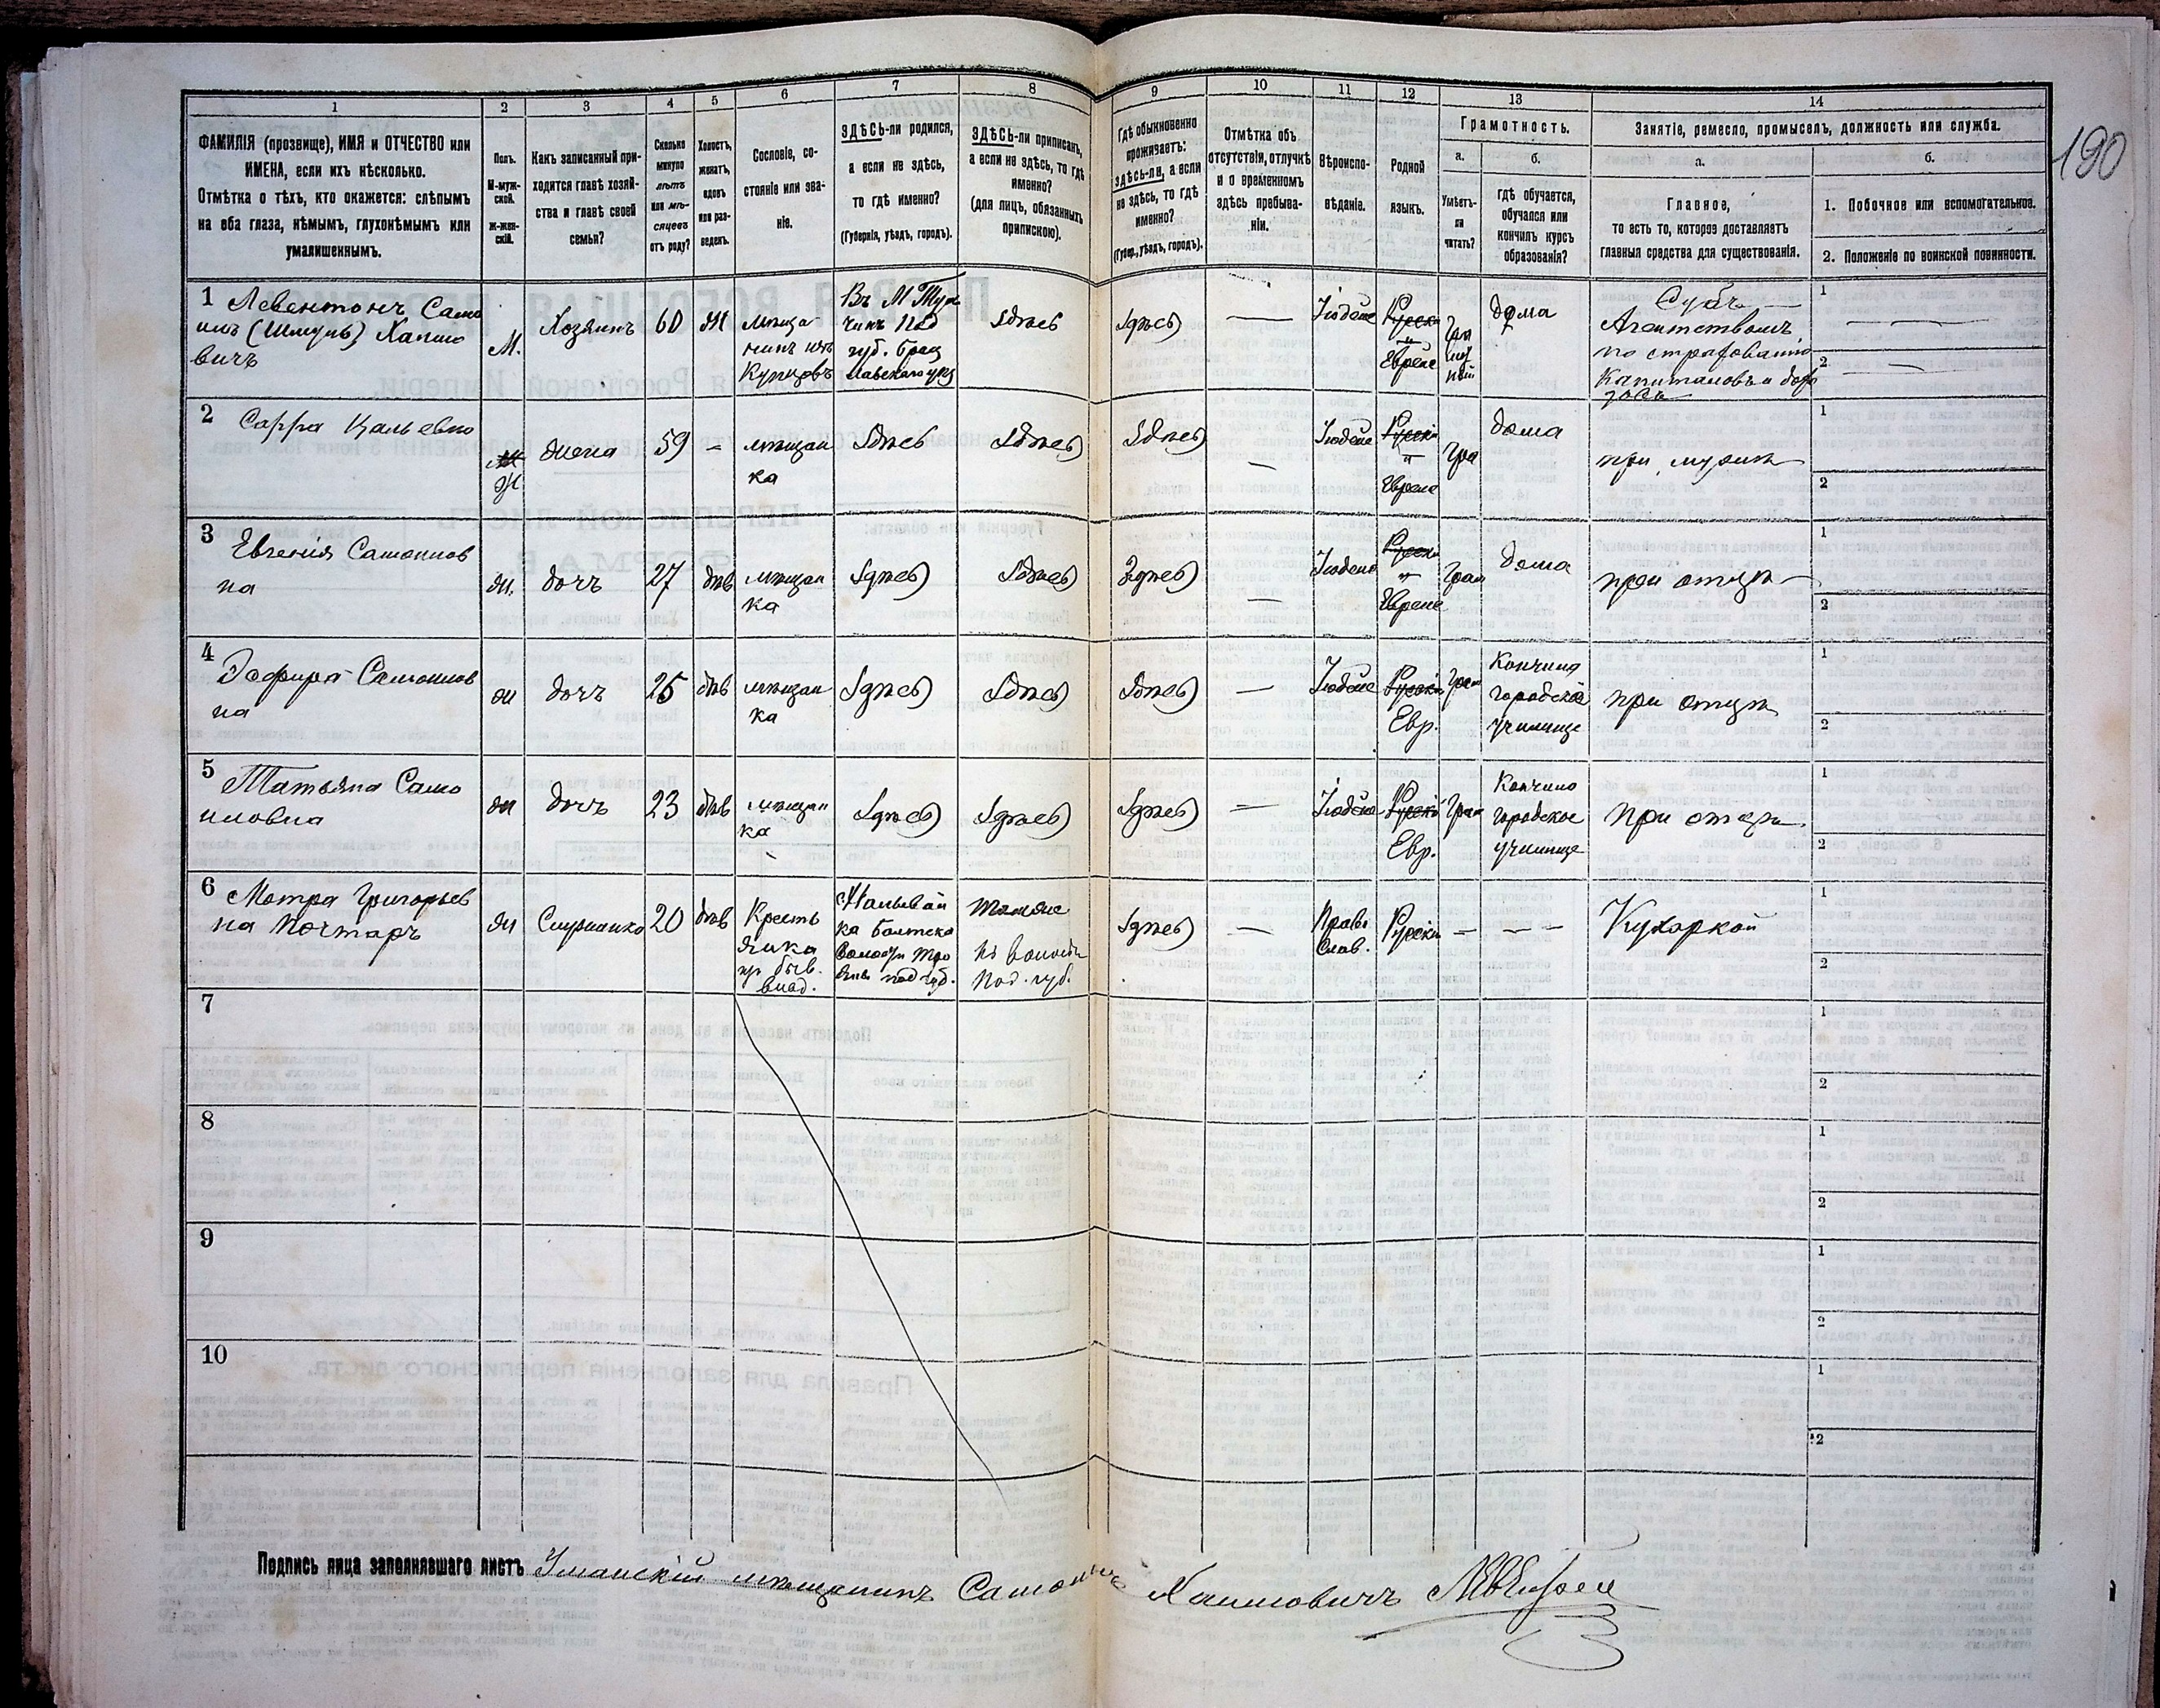 190
1 2 3 4 5 6 7 8 9 10 11 12 13 14
ФАМИЛІЯ (прозвище), ИМЯ и ОТЧЕСТВО или
ИМЕНА, если ихъ нѣсколько.
Отмѣтка о тѣхъ, кто окажется: слѣпымъ
на оба глаза, нѣмымъ, глухонѣмымъ или
умалишеннымъ.
Полъ.
М-муж-
ской.
Ж-жен-
скій.
Какъ записанный при-
ходится главѣ хозяй-
ства и главѣ своей
семьи?
Сколько
минуло
лѣтъ
или мѣ-
сяцевъ
отъ роду?
Холостъ,
женатъ,
вдовъ
или раз-
веденъ.
Сословіе, со-
стояніе или зва-
ніе.
ЗДѢСЬ-ли родился,
а если не здѣсь,
то гдѣ именно?
(Губернія, уѣздъ, городъ).
ЗДѢСЬ-ли приписанъ,
а если не здѣсь, то гдѣ
именно?
(для лицъ, обязанныхъ
припискою).
Гдѣ обыкновенно
проживаетъ:
здѣсь-ли, а если
не здѣсь, то гдѣ
именно?
(Губер., уѣздъ, городъ).
Отмѣтка объ
отсутствіи, отлучкѣ
и о временномъ
здѣсь пребыва-
ніи.
Вѣроиспо-
вѣданіе.
Родной
языкъ.
Грамотность.
а.
Умѣетъ-
ли
читать?
б.
гдѣ обучается,
обучался или
кончилъ курсъ
образованія?
Занятіе, ремесло, промыселъ, должность или служба.
а.
Главное,
то есть то, которое доставляетъ
главныя средства для существованія.
б.
1. Побочное или вспомогательное.
2. Положеніе по воинской повинности.
1 Левентонъ Само
илъ (Шмуль) Хаимо
вичъ
М.
Хозяинъ
60
Ж
мѣща
нинъ изъ
Купцовъ
Въ М Туль
чинъ Под
губ. Брац
лавскаго уѣз
Здѣсь
Здѣсь
—
Іюдейс
Русскі
и
Еврейс
дома
Субъ —
Агентствомъ
по страхованію
Капиталовъ и дохо
довъ
1
2
2 Сарра Цалевно
М
Ж
жена
59
-
мѣщан
ка
Здѣсь
Здѣсь
Здѣсь
—
Іюдейс
Русскі
и
Еврейс
Гра
дома
при мужѣ
1
2
3 Евгенія Самоилов
на
ж.
дочь
27
дѣв
мѣщан
ка
Здѣсь
Здѣсь
Здѣсь
—
Іюдейс
Русскі
и
Еврейс
Грам
дома
при отцѣ
1
2
4 Зефира Самоилов
на
ж
дочь
25
дѣв
мѣщан
ка
Здѣсь
Здѣсь
Здѣсь
—
Іюдейс
Русскі
Евр.
Грам
Кончила
городское
училище
при отцѣ
1
2
5 Татьяна Само
иловна
ж
дочь
23
дѣв
мѣщан
ка
Здѣсь
Здѣсь
Здѣсь
—
Іюдейс
Русскі
Евр.
Грам
Кончила
городское
училище
при отцѣ
1
2
6 Мотра Григорьев
на Почтаръ
ж
Служанка
20
дѣв
Кресть
янка
из быв.
влад.
под губ.
Под. губ.
Здѣсь
—
Право
Слав.
Русскі
—
— —
Кухаркой
1
2
7
1
2
8
1
2
9
1
2
10
1
2
Подпись лица заполнявшаго листъ Уманскій мѣщанинъ Самоилъ Хаимовичъ Левентон